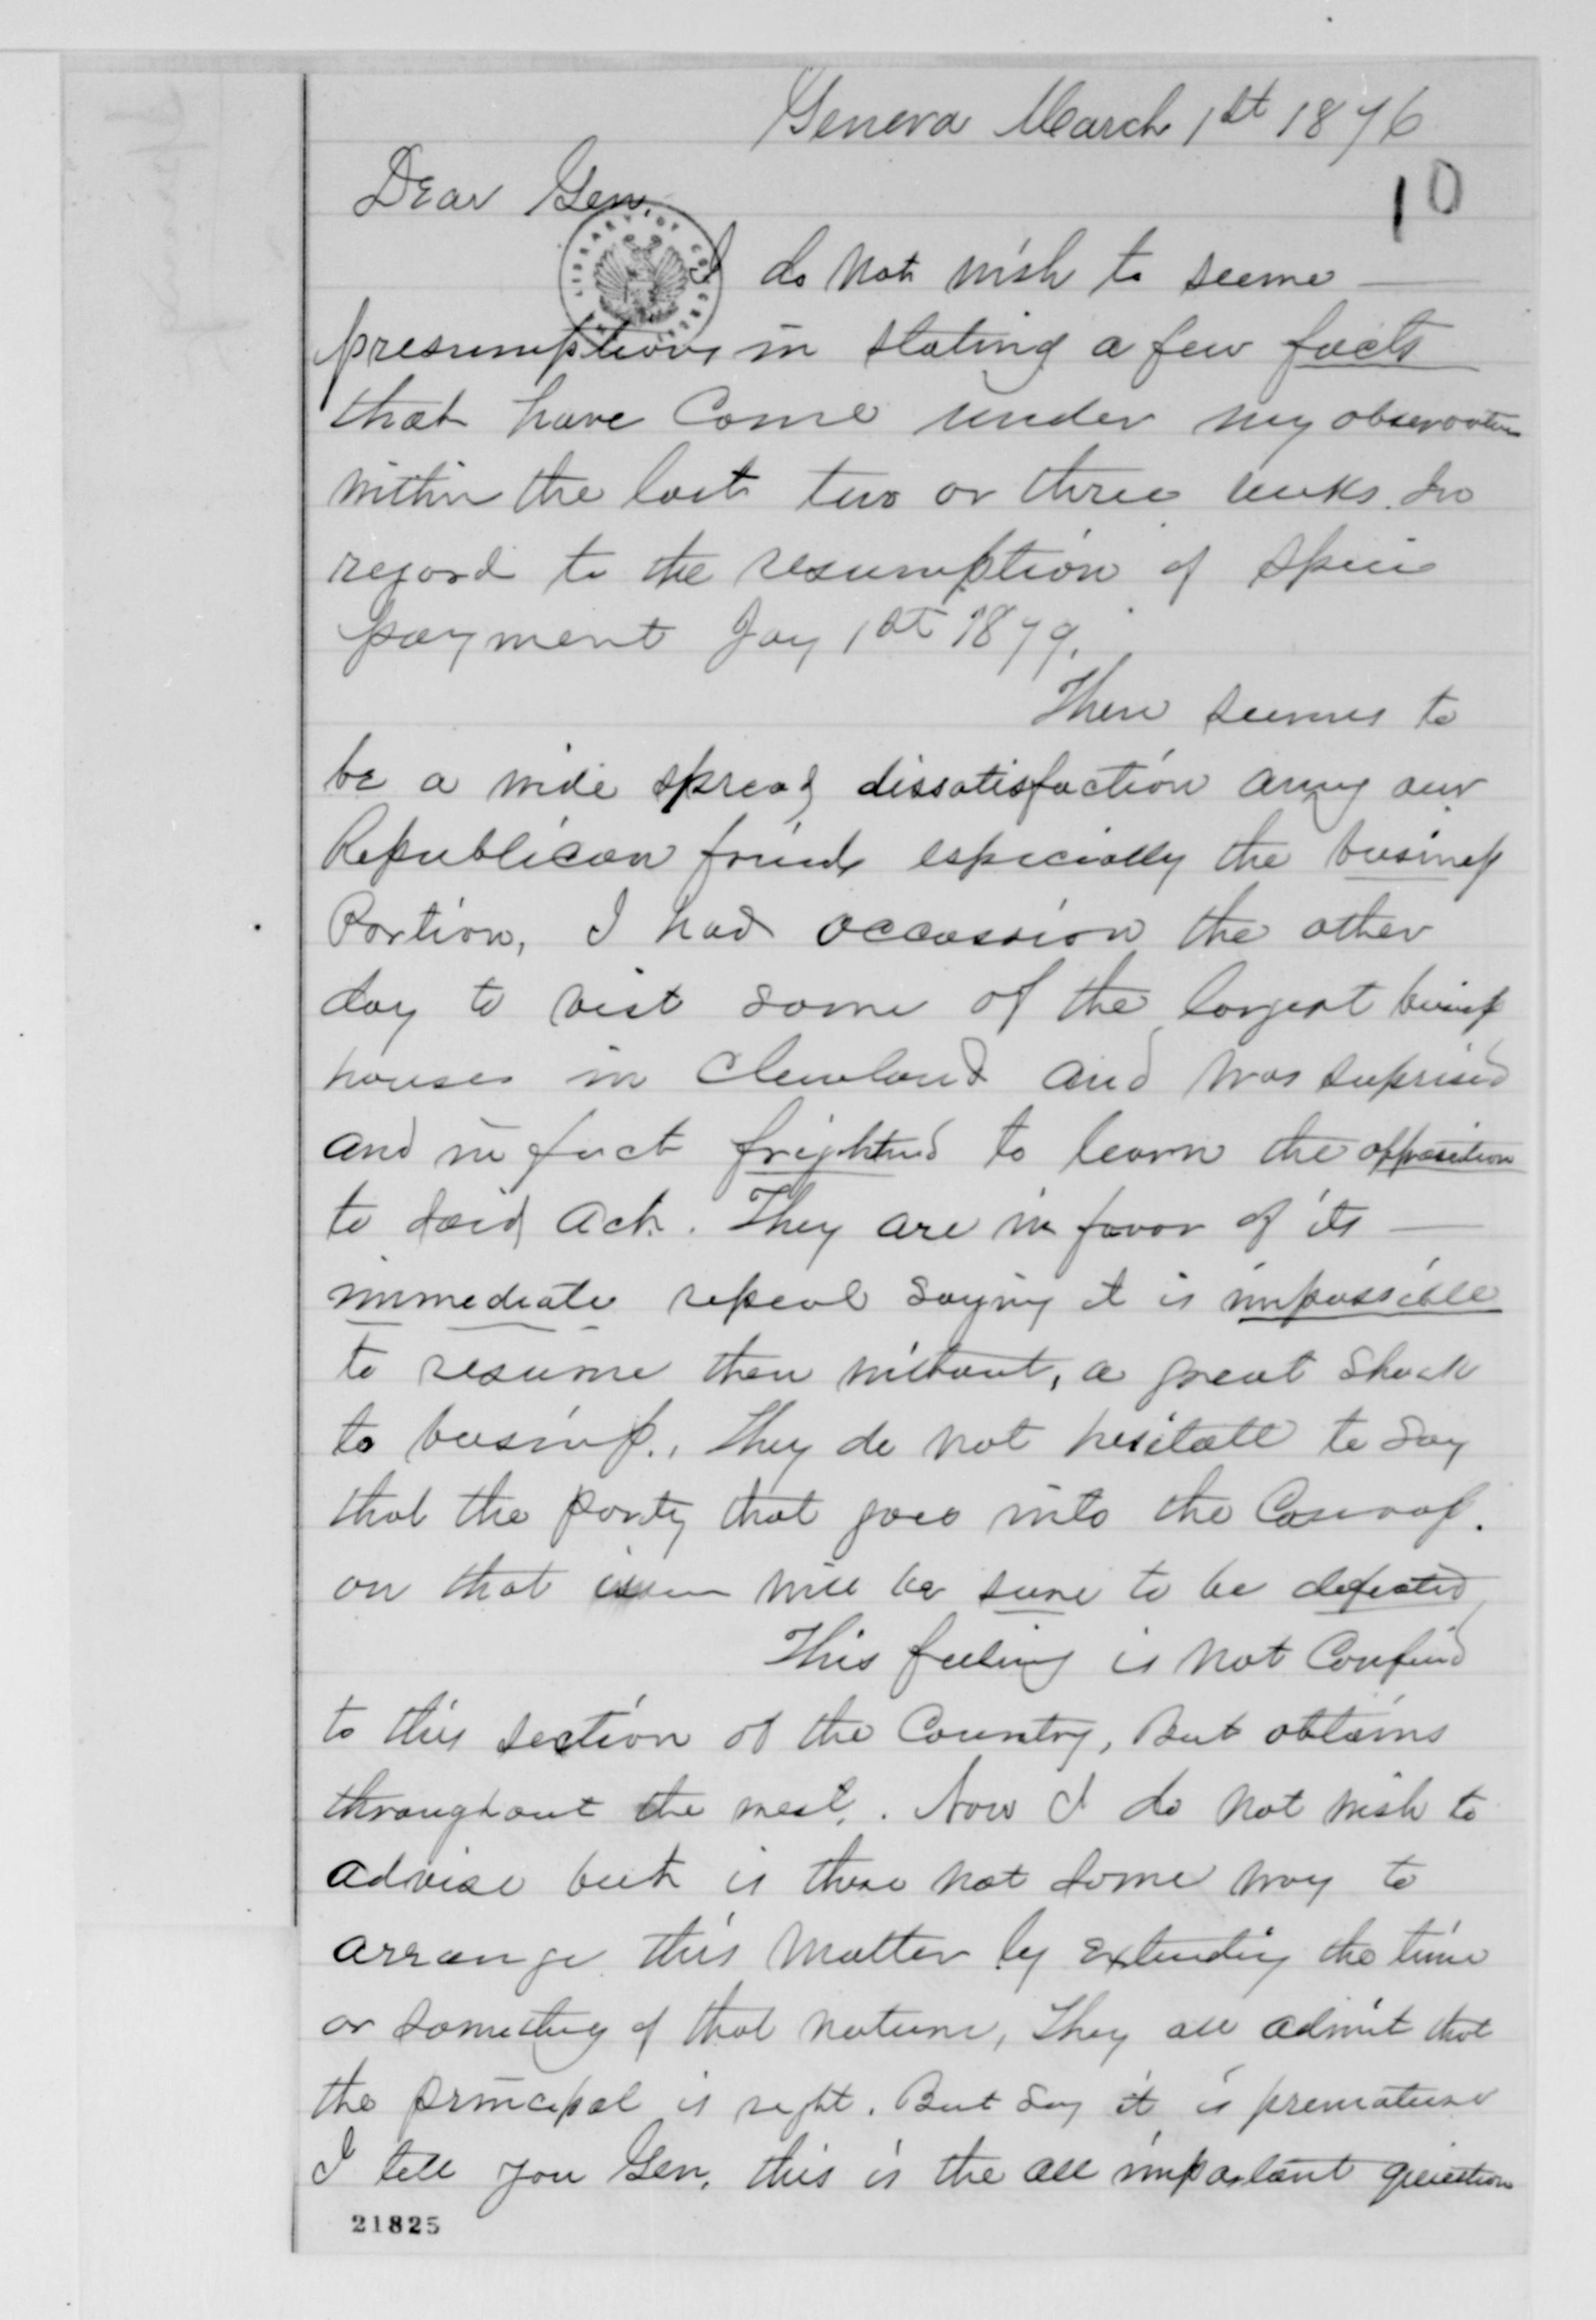 Geneva March 1st 1876
10
Dear Gen.
LIBRARY OF CONGRESS
I do not wish to seeme
presumptious in stating a few facts
that have Come under my observation
within the last two or three weeks. In
regard to the resumption of Specie
payment Jay 1st 1879.
There seemes to
be a wide spread dissatisfaction among our
Republican friends especially the business
Portion, I had occassion the other
day to visit some of the largest business
houses in Cleveland and was suprised
and in fact frightned to learn the opposition
to said Act. They are in favor of its
immediate repeal saying it is impossible
to resume then without, a great shock
to business., They do not hesitate to say
that the party that goes into the Canvass.
on that issue will be sure to be defeated
This feeling is not Confined
to this section of the Country, But obtains
throughout the west. Now I do not wish to
advise but is there not some way to
arrange this Matter by extending the time
or something of that nature, They all admit that
the principal is right. But say it is premature
I tell you Gen. this is the all important question
21825